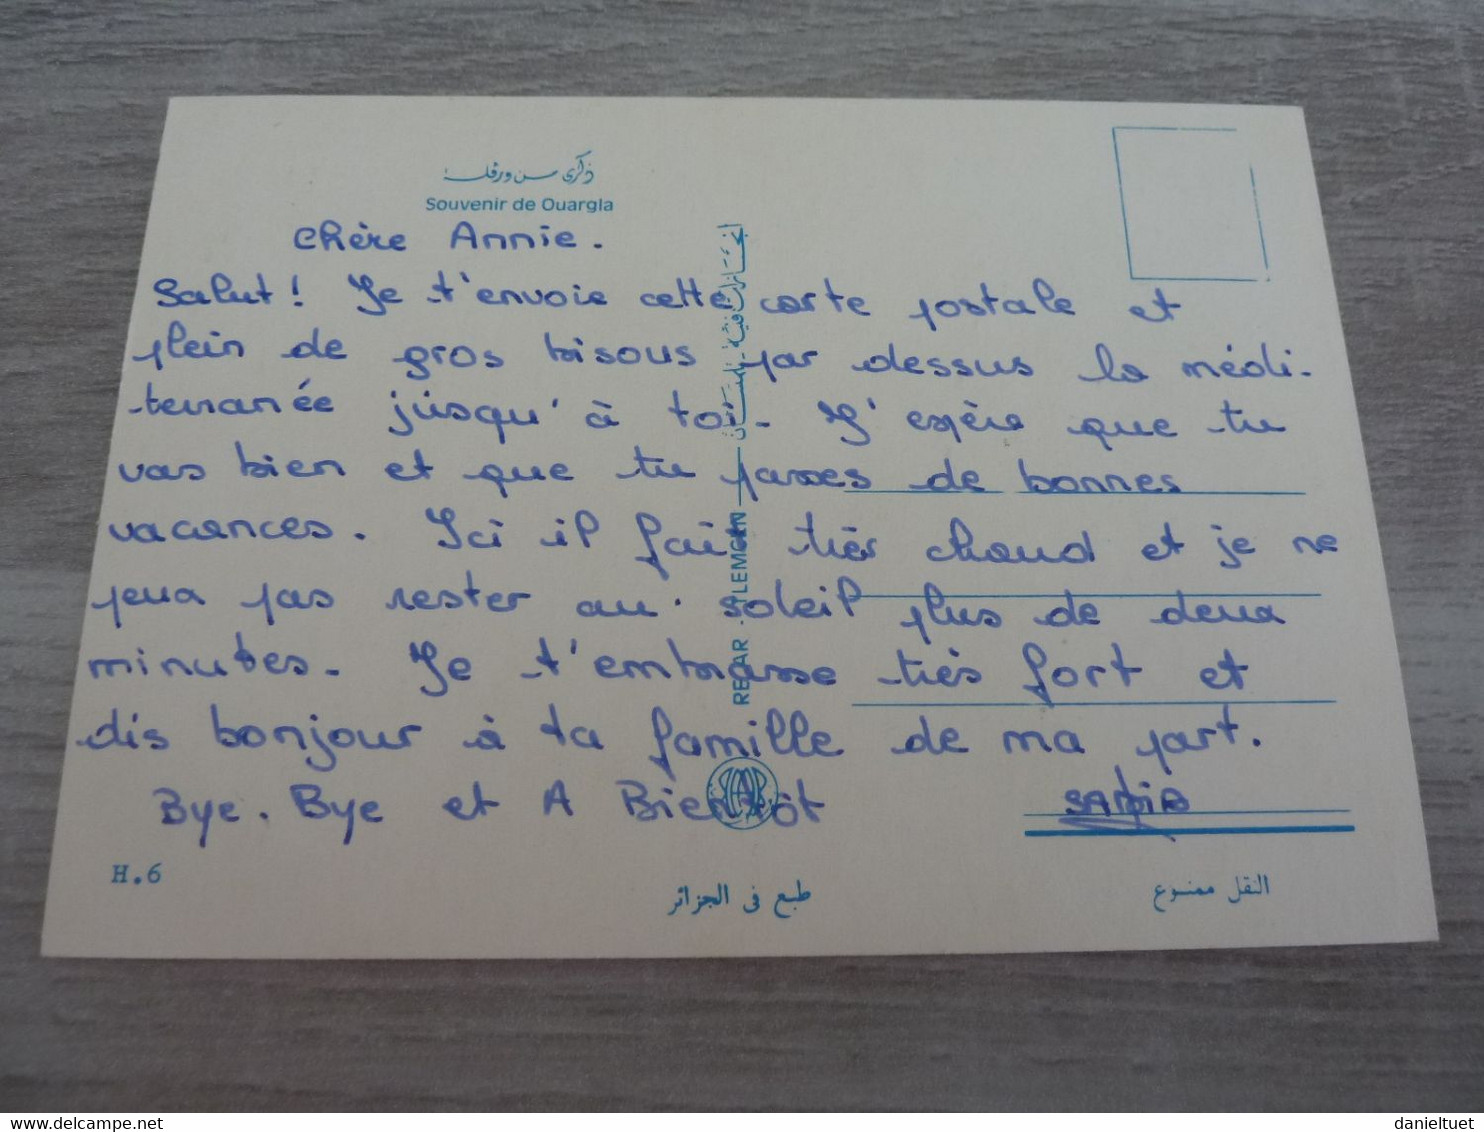 ذكرى من ورقلة
Souvenir de Ouargla
Chère Annie.
Salut! Je t'envoie cette carte postale et
plein de gros bisous par dessus la médi-
terranée jusqu'à toi. J'espère que tu
vas bien et que tu passes de bonnes
vacances. Ici il fait très chaud et je ne
peux pas rester au soleil plus de deux
minutes. Je t'embrasse très fort et
dis bonjour à ta famille de ma part.
Bye. Bye et A Bientôt
H.6
طبع في الجزائر
النقل ممنوع
www.delcampe.net
danieltuet